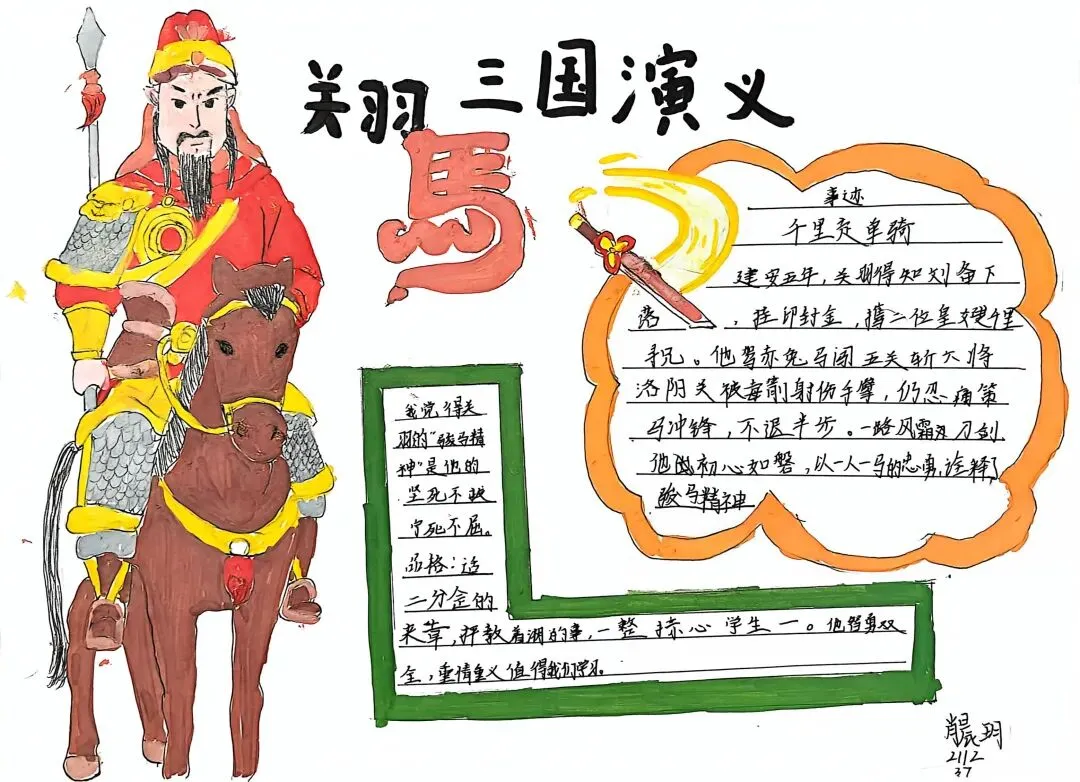 关羽 三国演义
馬
事迹
千里走单骑
建安五年,关羽得知刘备下
落,挂印封金,携二位皇嫂千里
寻兄。他骂赤兔马闯五关斩六将
洛阴关被毒箭射伤手臂,仍忍痛策
马冲锋,不退半步。一路风霜刀剑
他初心如磐,以一人一马的忠勇,诠释了
骏马精神
我觉得关
羽的“骏马精
神”是他的
坚死不
宁死不屈。
品格:
二分金的
来靠,着湖的事,一整 心学生一。他智勇双
全,重情重义值得我们学习。
肖晨玥
2112
37